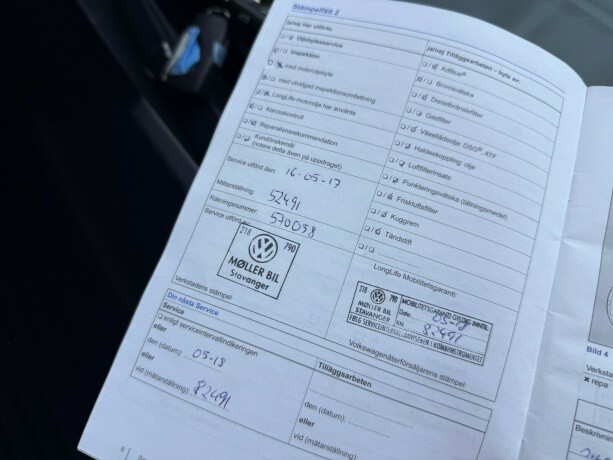 Stämpelfält 2
ja/nej Har utförts:
Oljebytesservice
Inspektion
med motoroljebyte
med utvidgad inspektionsomfattning
LongLife-motorolja har använts
Karosskontroll
Reparationsrekommendation
Kundönskemål
(notera detta även på uppdraget)
Service utförd den: 16-05-17
Mätarställning: 52491
Räkningsnummer: 570058
Service utförd av:
218 790
MØLLER BIL
Stavanger
Verkstadens stämpel
ja/nej Tilläggsarbeten – byte av:
AdBlue®
Bromsvätska
Dieselbränslefilter
Gasfilter
Växellådsolja: DSG® ATF
Haldexkoppling: olja
Luftfilterinsats
Punkteringsvätska (tätningsmedel)
Friskluftsfilter
Kuggrem
Tändstift
LongLife Mobilitetsgaranti:
218 790
MØLLER BIL
STAVANGER
MOBILITETSGARANTI GYLDIG INNTIL
Dato 05-18
KM 82491
Volkswagenåterförsäljarens stämpel
Din nästa Service
Service
enligt serviceintervallindikeringen
eller
den (datum): 05-18
eller
vid (mätarställning): 82491
Tilläggsarbeten
den (datum):
eller
vid (mätarställning):
Bild 4
Verksta
repa
Beskrivnin